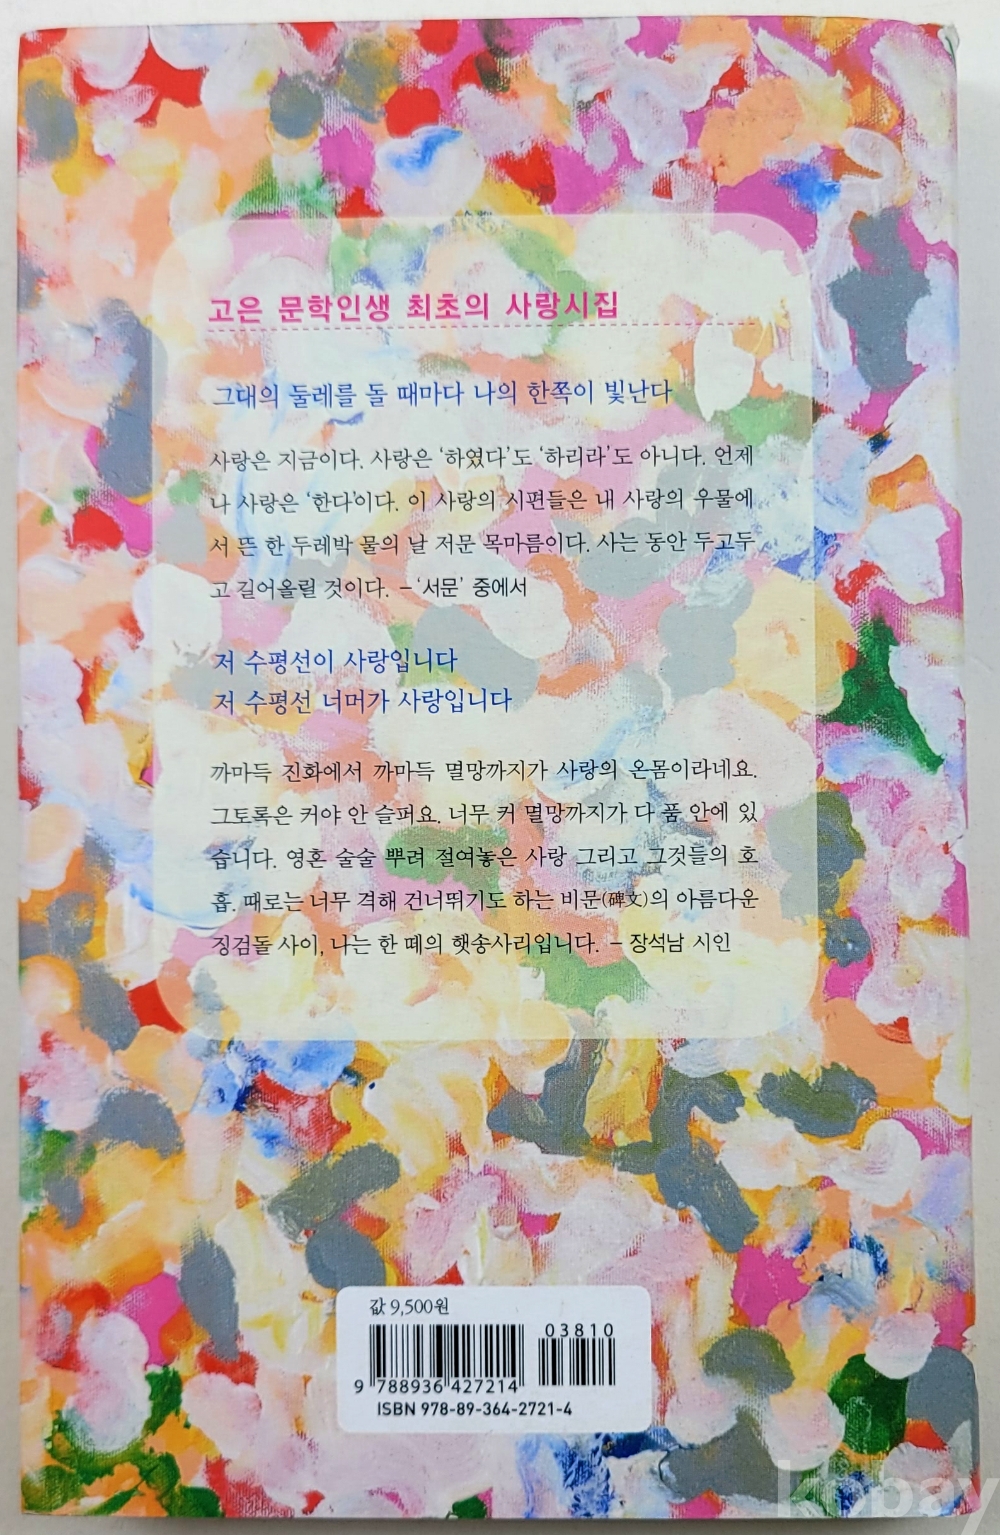 고은 문학인생 최초의 사랑시집
그대의 둘레를 돌 때마다 나의 한쪽이 빛난다
사랑은 지금이다. 사랑은 ‘하였다’도 ‘하리라’도 아니다. 언제
나 사랑은 ‘한다’이다. 이 사랑의 시편들은 내 사랑의 우물에
서 뜬 한 두레박 물의 날 저문 목마름이다. 사는 동안 두고두
고 길어올릴 것이다. – ‘서문’ 중에서
저 수평선이 사랑입니다
저 수평선 너머가 사랑입니다
까마득 진화에서 까마득 멸망까지가 사랑의 온몸이라네요.
그토록은 커야 안 슬퍼요. 너무 커 멸망까지가 다 품 안에 있
습니다. 영혼 술술 뿌려 절여놓은 사랑 그리고 그것들의 호
흡. 때로는 너무 격해 건너뛰기도 하는 비문(碑文)의 아름다운
징검돌 사이, 나는 한 떼의 햇송사리입니다. – 장석남 시인
값 9,500원
03810
9 788936 427214
ISBN 978-89-364-2721-4
kobay